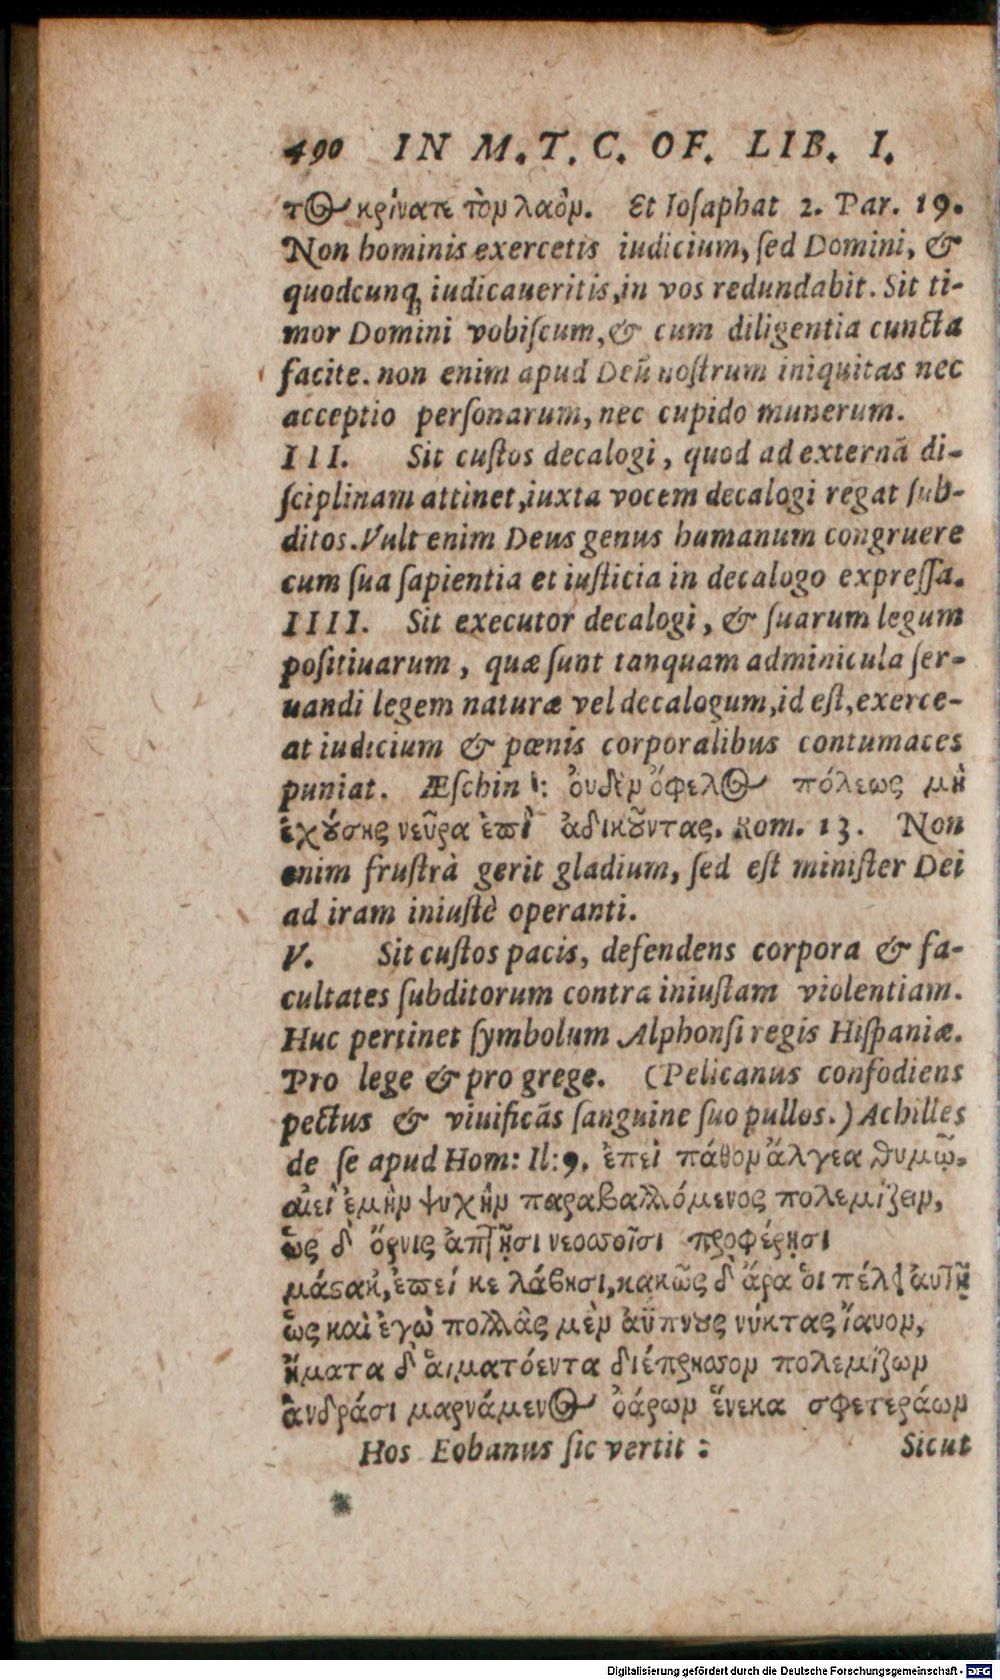 490 IN M.T.C. OF. LIB. I.
τος κρίνατε τὸν λαόν. Et Iosaphat 2. Par. 19.
Non hominis exercetis iudicium, sed Domini, &
quodcunq; iudicaueritis, in vos redundabit. Sit ti-
mor Domini vobiscum, & cum diligentia cuncta
facite. non enim apud Deũ nostrum iniquitas nec
acceptio personarum, nec cupido munerum.
III. Sit custos decalogi, quod ad externã di-
sciplinam attinet, iuxta vocem decalogi regat sub-
ditos. Vult enim Deus genus humanum congruere
cum sua sapientia et iusticia in decalogo expressa.
IIII. Sit executor decalogi, & suarum legum
positiuarum, quæ sunt tanquam adminicula ser-
uandi legem naturæ vel decalogum, id est, exerce-
at iudicium & pœnis corporalibus contumaces
puniat. Æschin: ὀυδὲν ὄφελος πόλεως μὴ
ἐχούσης νεῦρα ἐπὶ ἀδικοῦντας. Rom. 13. Non
enim frustrà gerit gladium, sed est minister Dei
ad iram iniustè operanti.
V. Sit custos pacis, defendens corpora & fa-
cultates subditorum contra iniustam violentiam.
Huc pertinet symbolum Alphonsi regis Hispaniæ.
Pro lege & pro grege. (Pelicanus confodiens
pectus & viuificãs sanguine suo pullos.) Achilles
de se apud Hom: Il: 9. ἐπεὶ πάθον ἄλγεα θυμῷ.
αἰεὶ ἐμὴν ψυχὴν παραβαλλόμενος πολεμίζειν,
ὡς δ' ὄρνις ἀπτῆσι νεοσσοῖσι προφέρησι
μάστακ', ἐπεί κε λάβησι, κακῶς δ' ἄρα ὁι πέλει ἀυτῇ
ὡς καὶ ἐγὼ πολλὰς μὲν ἀΰπνους νύκτας ἴαυον,
ἤματα δ' ἁιματόεντα διέπρησσον πολεμίζων
ἀνδράσι μαρνάμενος ὀάρων ἕνεκα σφετεράων
Hos Eobanus sic vertit: Sicut
Digitalisierung gefördert durch die Deutsche Forschungsgemeinschaft - DFG